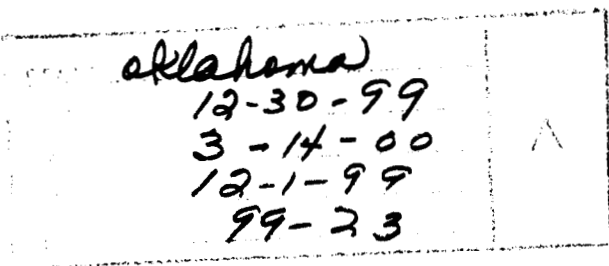 oklahoma
12-30-99
3-14-00
12-1-99
99-23